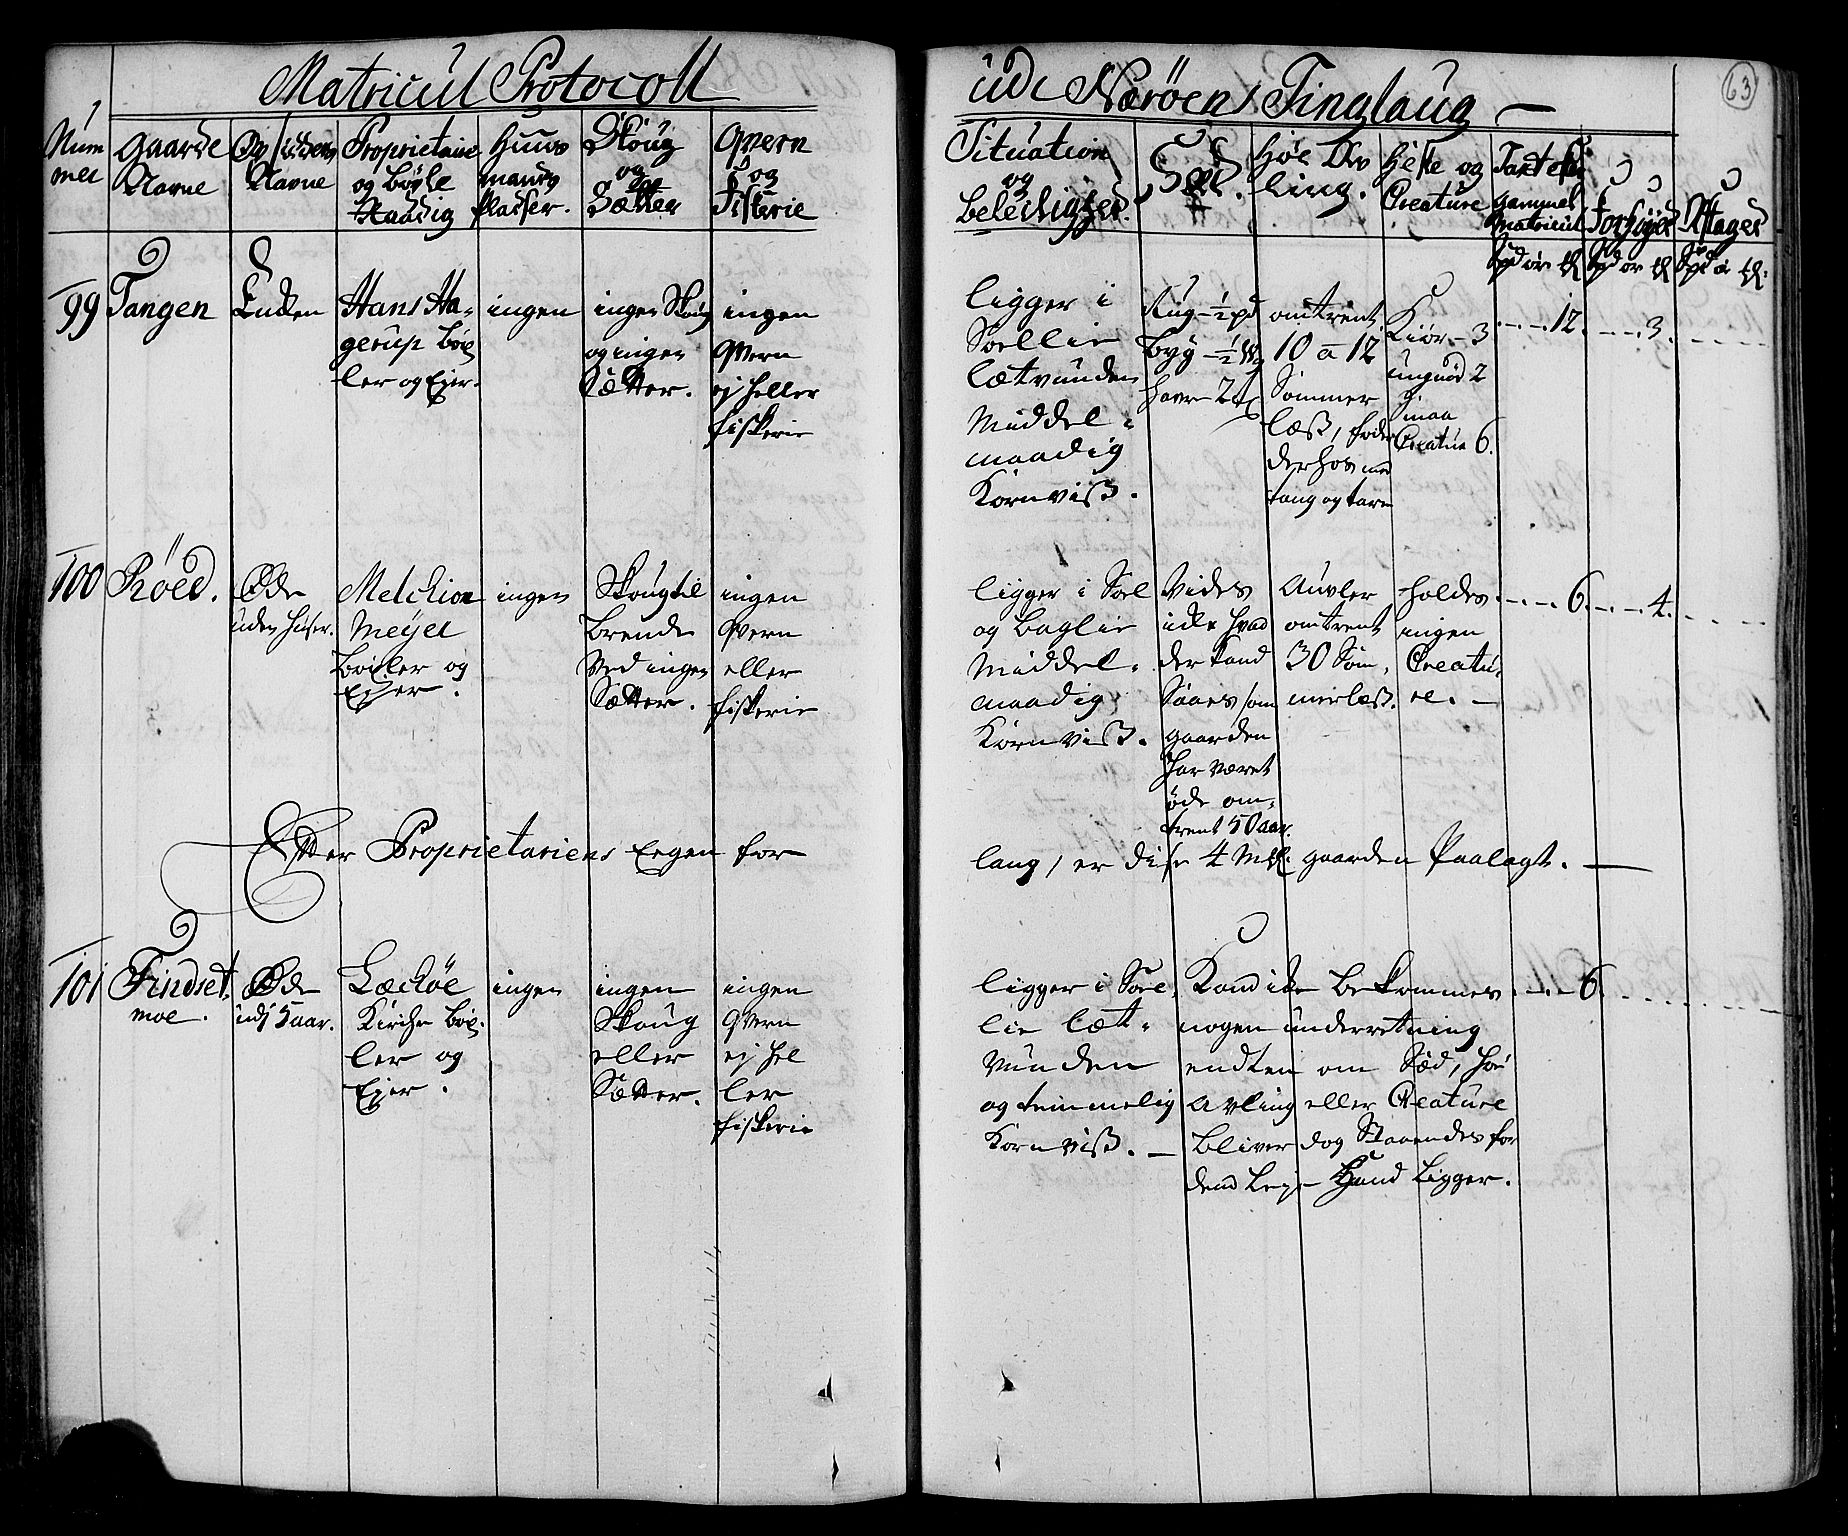 Matricul Protocoll
udi Næröens Tinglaug
63
Num
mer
Gaarde
Navne
Opsiddernes
Navne
Proprietairer
og bøxle
Raadig
Huus
mands
pladser.
Skoug
og
Sætter
Qvern
og
Fiskerie
Situation
og
beleilighed.
Sæd.
Höe Av
ling.
Heste og
Creature
Taxt efter
gammel
Matricul
Forhöyed
Aftaged
99
Tangen
Enken
Hans Ha-
gerup böx
ler og Ejer.
ingen
ingen Skoug
og ingen
Sætter.
ingen
Qvern
ej heller
fiskerie
ligger i
Soellie
lætvunden
Middel-
maadig
Kornviss.
Rug - ½ pd
byg - ½ Wog
havre 2 t
omtrent
10 a 12
Sommer
læss, foder
derhos med
tang og tare
Kiör - 3
ungnöd 2
Smaa
Creature 6.
12.
3.
100
Röed.
Øde
uden huser.
Melchior
Meyer
böxler og
Ejer.
ingen
Skoug til
brende
Ved ingen
Sætter.
ingen
Qvern
eller
fiskerie
ligger i Soel
og baglie
Middel-
maadig
Kornviss.
Vides
icke hvad
der kand
Saaes som
gaarden
har været
øde om-
trent 50 aar.
Auvler
omtrent
30 Som-
merlæss.
holdes
ingen
Creatu-
re.
6.
4.
Efter Proprietariens Eegen for
lang, er disse 4 Mkl. gaarden Paalagt.
101
Findset
moe.
Øde
udj 5 aar.
Lechöe
Kirche böx-
ler og
Ejer.
ingen
ingen
Skoug
eller
Sætter.
ingen
Qvern
ej hel
ler
fiskerie
ligger i Soel
lie læt-
vunden
og temmelig
Kornviss.
Kand icke bekommes
nogen underretning
endten om Sæd, höe
Avling eller Creature
bliver dog Staaendes for
dend Leje Hand Ligger.
6.